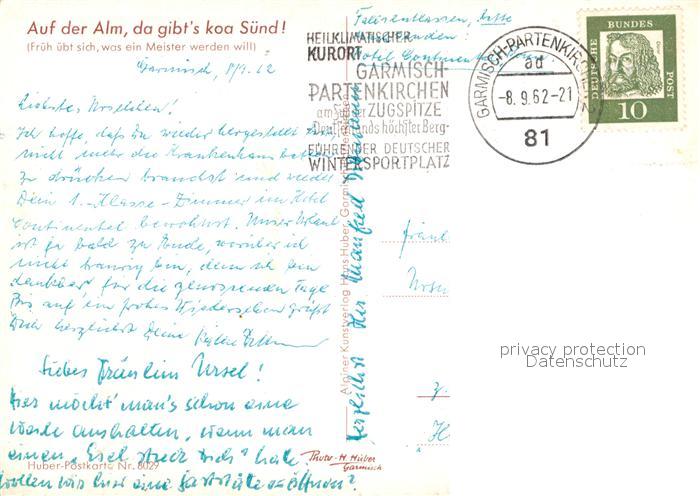 Auf der Alm, da gibt's koa Sünd!
(Früh übt sich, was ein Meister werden will)
Garmisch, 8/9. 62
Liebstes Urselchen!
Ich hoffe, daß Du wieder hergestellt bist
nicht mehr die Krankenhaus betten
zu drücken brauchst und wieder
Dein 1.-Klasse-Zimmer im Hotel
Continental bewohnst. Unser Urlaub
ist ja bald zu Ende, worüber ich
nicht traurig bin, denn ich bin
dankbar für die genossenen Tage
Bis auf ein frohes Wiedersehen grüßt
Dich herzlichst Deine
Liebes Fräulein Ursel!
Hier möcht' man's schon eine
Weile aushalten, wenn man
einen "Esel streck dich" hätte.
Wollen wir hier eine Gaststätte eröffnen?
Huber-Postkarte Nr. 8029
Photo-H. Huber
Garmisch
Alpiner Kunstverlag Hans Huber, Garmisch-Partenkirchen
Herzlichst Ihr Manfred
Falls entlassen, bitte
nachsenden:
Hotel Continental
HEILKLIMATISCHER
KURORT
GARMISCH-
PARTENKIRCHEN
am Fuße der ZUGSPITZE
Deutschlands höchster Berg-
FÜHRENDER DEUTSCHER
WINTERSPORTPLATZ
GARMISCH-PARTENKIRCHEN 2
ad
-8.9.62-21
81
DEUTSCHE BUNDES POST
10
Fräul
Ursu
z.
H
privacy protection
Datenschutz